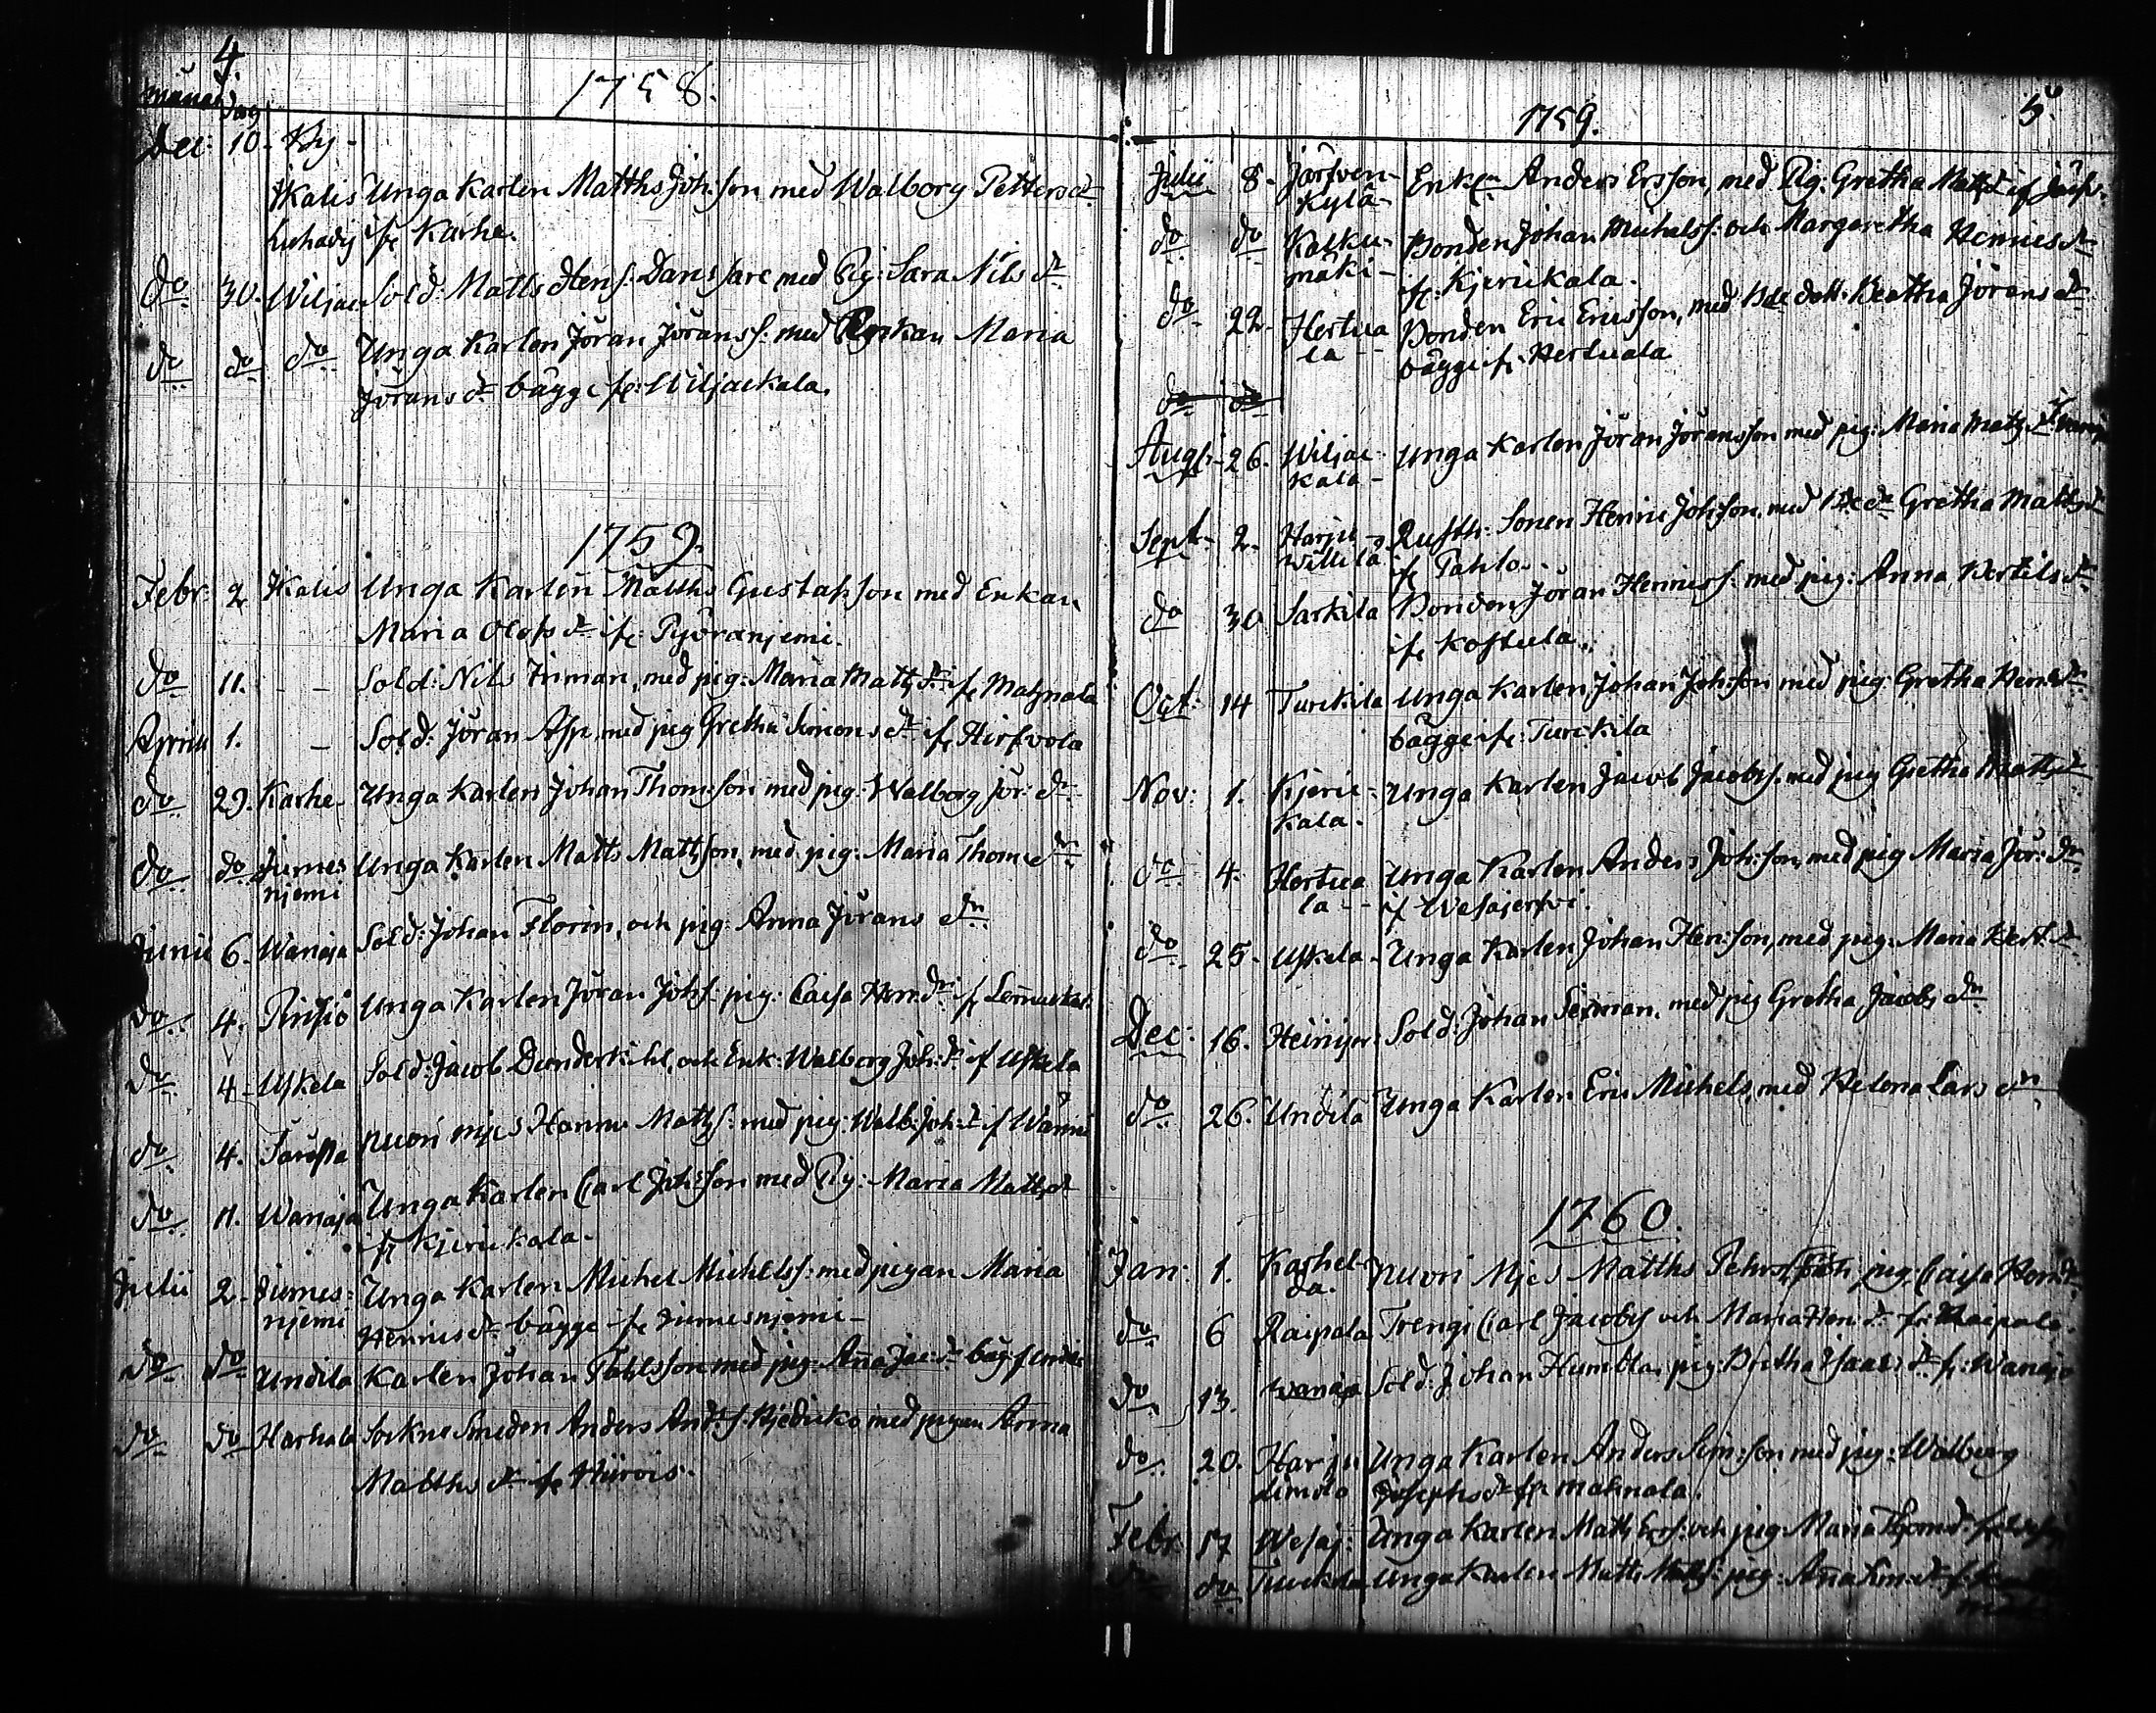 4.
månad Dag
1758.
Dec: 10. By
Kalis Unga Karlen Matths Joh:son med Walborg Pettersdr
ifr Karhe.
do 30. Wiljac Sold: Matts Hen s: Danssare med Pig: Sara Nils dr
do do do Unga Karlen Jöran Jöranss: med Pigkan Maria
Jörans dr bägge fr: Wiljackala.
1759.
Febr: 2 Kalis Unga Karlen Matths Gustafsson med Enkan
Maria Olofs dr ifr: Pyöranjemi.
do 11. - - Sold: Nils Friman, med pig: Maria Matts dr ifr Mahnala
Aprill 1. - Sold: Jöran Asp, med pig Gretha Simons dr ifr Hirfvola
do 29. Karhe - Unga Karlen Johan Thom:son med pig: Walborg Jör: dr
do do Jumes- Unga Karlen Matts Mattsson, med pig: Maria Thom: dr
njemi
Junii 6. Wanaja Sold: Johan Florin, och pig: Anna Jörans dr
do 4. Unga Karlen Jöran Johs: pig: Caisa Hen: dr fr
do 4. Uskela Sold: Jacob Dunderkihl, och Enk: Walborg Joh: dr if Uskela
do 4. nuori mjes Hannu Matts: med pig: Walb: Joh: dr f Wänni
do 11. Wanaja Unga Karlen Carl Joh:son med Pig: Maria Matts dr
ifr Kjerickala.
Julii 2. Jumes= Unga Karlen Michel Michelss: med pigan Maria
njemi Henrics dr bägge fr Jumesnjemi
do do Undila Karlen Johan Pahlsson med pig: Anna Jac: dr bäg: f Undila
do do Harhala Sockne Smeden Anders And: s: med pigan Anna
Matths dr ifr
1759.
5.
Julii 8. Järfven- Enkln Anders Ersson, med Pig: Gretha Matts dr if Järf:
kylä-
do do Kalku- Bonden Johan Michelss: och Margaretha Henrics dr
mäki- ifr: Kjerickala.
do 22. Hertua Bonden Eric Ericsson, med Bde dott: Beatha Jörans dr
la - - bägge fr: Hertuala
do do
Augt: 26. Wiljac Unga Karlen Jöran Jöransson med pig: Maria Matz dr
kala -
Sept: 2. Harju - Rusth: Sonen Henric Johsson, med Bde dr Gretha Matts dr
Willila ifr Pahlo.
do 30 Sarkila Bonden Jöran Henrics s: med pig: Anna Bertils dr
ifr Kostula.
Oct: 14 Turckila Unga Karlen Johan Joh:son med pig: Gretha Henr: dr
bägge ifr: Turckila
Nov: 1. Kjeric- Unga Karlen Jacob Jacobss: med pig Gretha Matts dr
kala.
do 4. Hertua Unga Karlen Anders Joh:son, med pig Maria Jör: dr
la - - if Wesajerfvi.
do 25. Uskela - Unga Karlen Johan Hen:son, med pig: Maria Bert: dr
Dec: 16. Heinijer: Sold: Johan Serman, med pig Gretha Jacobs dr
do 26. Undila Unga Karlen Eric Michels, med Helena Lars dr
1760.
Jan: 1. Karhel- nuori Mjes Matths Pehrs: och pig: Caisa Henr: dr
da.
do 6 Raipala Trengi Carl Jacobs och Maria Hen: dr fr: Raipala.
do 13. Wanaja Sold: Johan Humbla, pig: Bretha Isaacs dr fr: Wanaja
do 20. Harju Unga Karlen Anders Sim:son med pig: Walborg
Simola Josephs dr fr Mahnala.
Febr: 17 Wesaj: Unga Karlen Matts Ers: och pig: Maria Thom dr: fr
do do Turckila Unga Karlen Matts Matts: pig: Anna Sim: dr